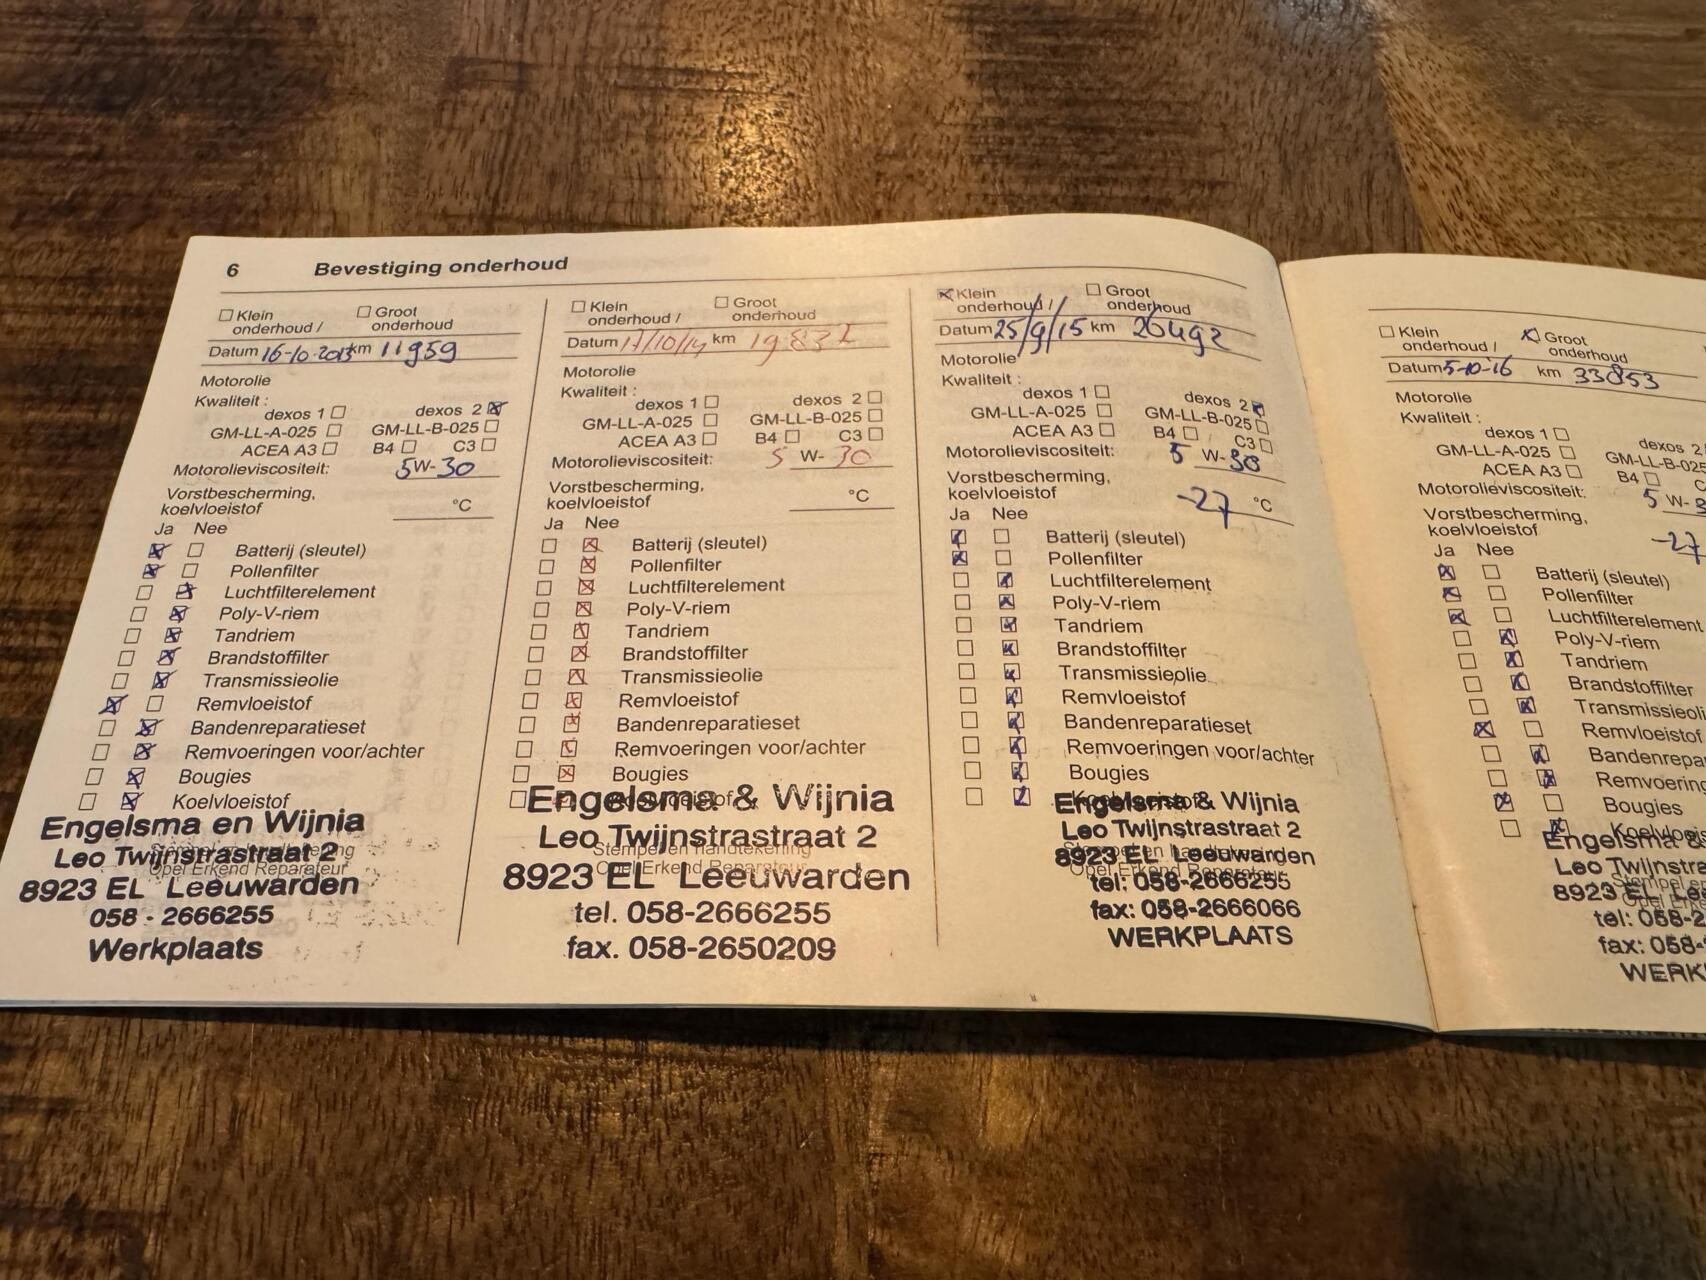 6 Bevestiging onderhoud
Klein onderhoud / Groot onderhoud
Datum 16-10-2013 km 11959
Motorolie
Kwaliteit :
dexos 1 dexos 2
GM-LL-A-025 GM-LL-B-025
ACEA A3 B4 C3
Motorolieviscositeit: 5W-30
Vorstbescherming,
koelvloeistof °C
Ja Nee
Batterij (sleutel)
Pollenfilter
Luchtfilterelement
Poly-V-riem
Tandriem
Brandstoffilter
Transmissieolie
Remvloeistof
Bandenreparatieset
Remvoeringen voor/achter
Bougies
Koelvloeistof
Engelsma en Wijnia
Leo Twijnstrastraat 2
Stempel en handtekening
Opel Erkend Reparateur
8923 EL Leeuwarden
058 - 2666255
Werkplaats
Klein onderhoud / Groot onderhoud
Datum 17/10/14 km
Motorolie
Kwaliteit :
dexos 1 dexos 2
GM-LL-A-025 GM-LL-B-025
ACEA A3 B4 C3
Motorolieviscositeit: 5 W- 30
Vorstbescherming,
koelvloeistof °C
Ja Nee
Batterij (sleutel)
Pollenfilter
Luchtfilterelement
Poly-V-riem
Tandriem
Brandstoffilter
Transmissieolie
Remvloeistof
Bandenreparatieset
Remvoeringen voor/achter
Bougies
Koelvloeistof
Engelsma & Wijnia
Leo Twijnstrastraat 2
Stempel en handtekening
Opel Erkend Reparateur
8923 EL Leeuwarden
tel. 058-2666255
fax. 058-2650209
Klein onderhoud / Groot onderhoud
Datum 25/9/15 km 26492
Motorolie
Kwaliteit :
dexos 1 dexos 2
GM-LL-A-025 GM-LL-B-025
ACEA A3 B4 C3
Motorolieviscositeit: 5 W-30
Vorstbescherming,
koelvloeistof -27 °C
Ja Nee
Batterij (sleutel)
Pollenfilter
Luchtfilterelement
Poly-V-riem
Tandriem
Brandstoffilter
Transmissieolie
Remvloeistof
Bandenreparatieset
Remvoeringen voor/achter
Bougies
Koelvloeistof
Engelsma & Wijnia
Leo Twijnstrastraat 2
Stempel en handtekening
8923 EL Leeuwarden
Opel Erkend Reparateur
tel: 058-2666255
fax: 058-2666066
WERKPLAATS
Klein onderhoud / Groot onderhoud
Datum 5-10-16 km 33853
Motorolie
Kwaliteit :
dexos 1 dexos 2
GM-LL-A-025 GM-LL-B-025
ACEA A3 B4 C
Motorolieviscositeit: 5 W-3
Vorstbescherming,
koelvloeistof -27
Ja Nee
Batterij (sleutel)
Pollenfilter
Luchtfilterelement
Poly-V-riem
Tandriem
Brandstoffilter
Transmissieoli
Remvloeistof
Bandenrepa
Remvoering
Bougies
Koelvloeis
Engelsma &
Leo Twijnstra
Stempel en
8923 EL Le
Opel Erke
tel: 058-2
fax: 058-
WERK